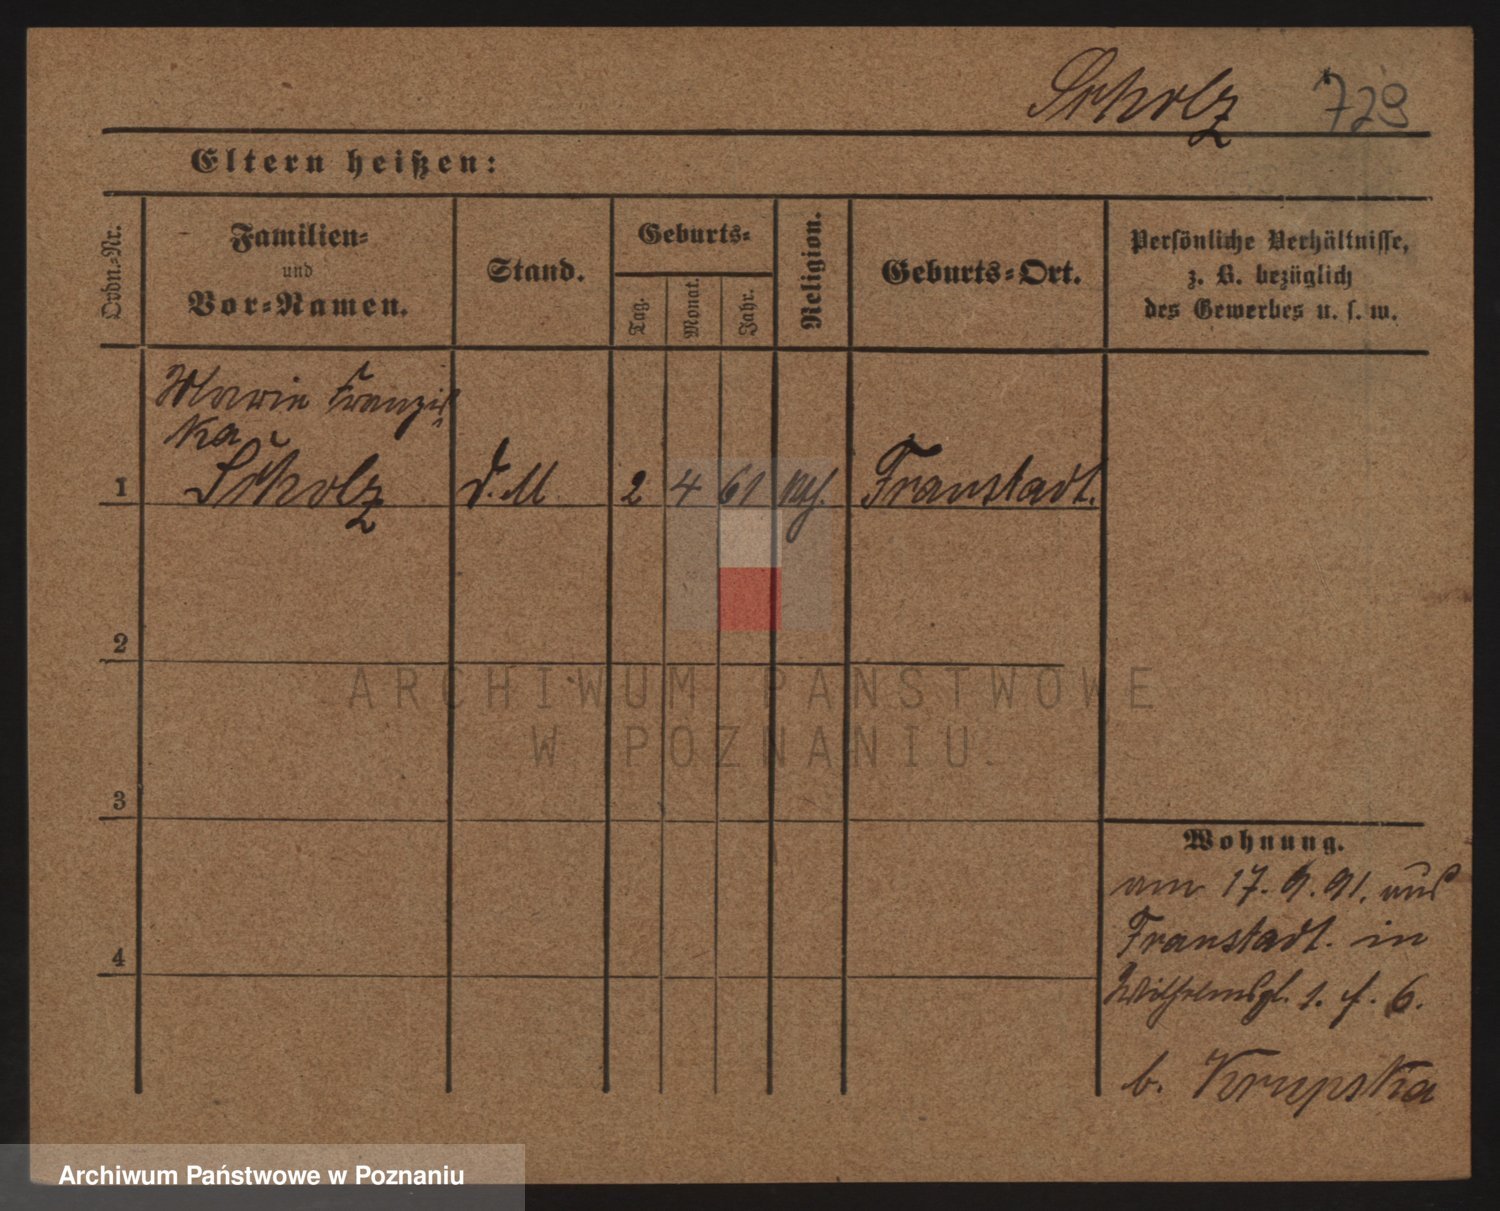 Scholz 729
Eltern heißen:
Ordn.-Nr.
Familien-
und
Vor-Namen.
Stand.
Geburts-
Tag.
Monat.
Jahr.
Religion.
Geburts-Ort.
Persönliche Verhältnisse,
z. B. bezüglich
des Gewerbes u. s. w.
Marie Franzis
ka
1 Scholz d. M. 2 4 61 Fraustadt.
2
3
4
Wohnung.
am 17. 9. 91. aus
Fraustadt. in
Wilhelmspl. 1. f. 6.
b. Krupska
ARCHIWUM PAŃSTWOWE
W POZNANIU
Archiwum Państwowe w Poznaniu